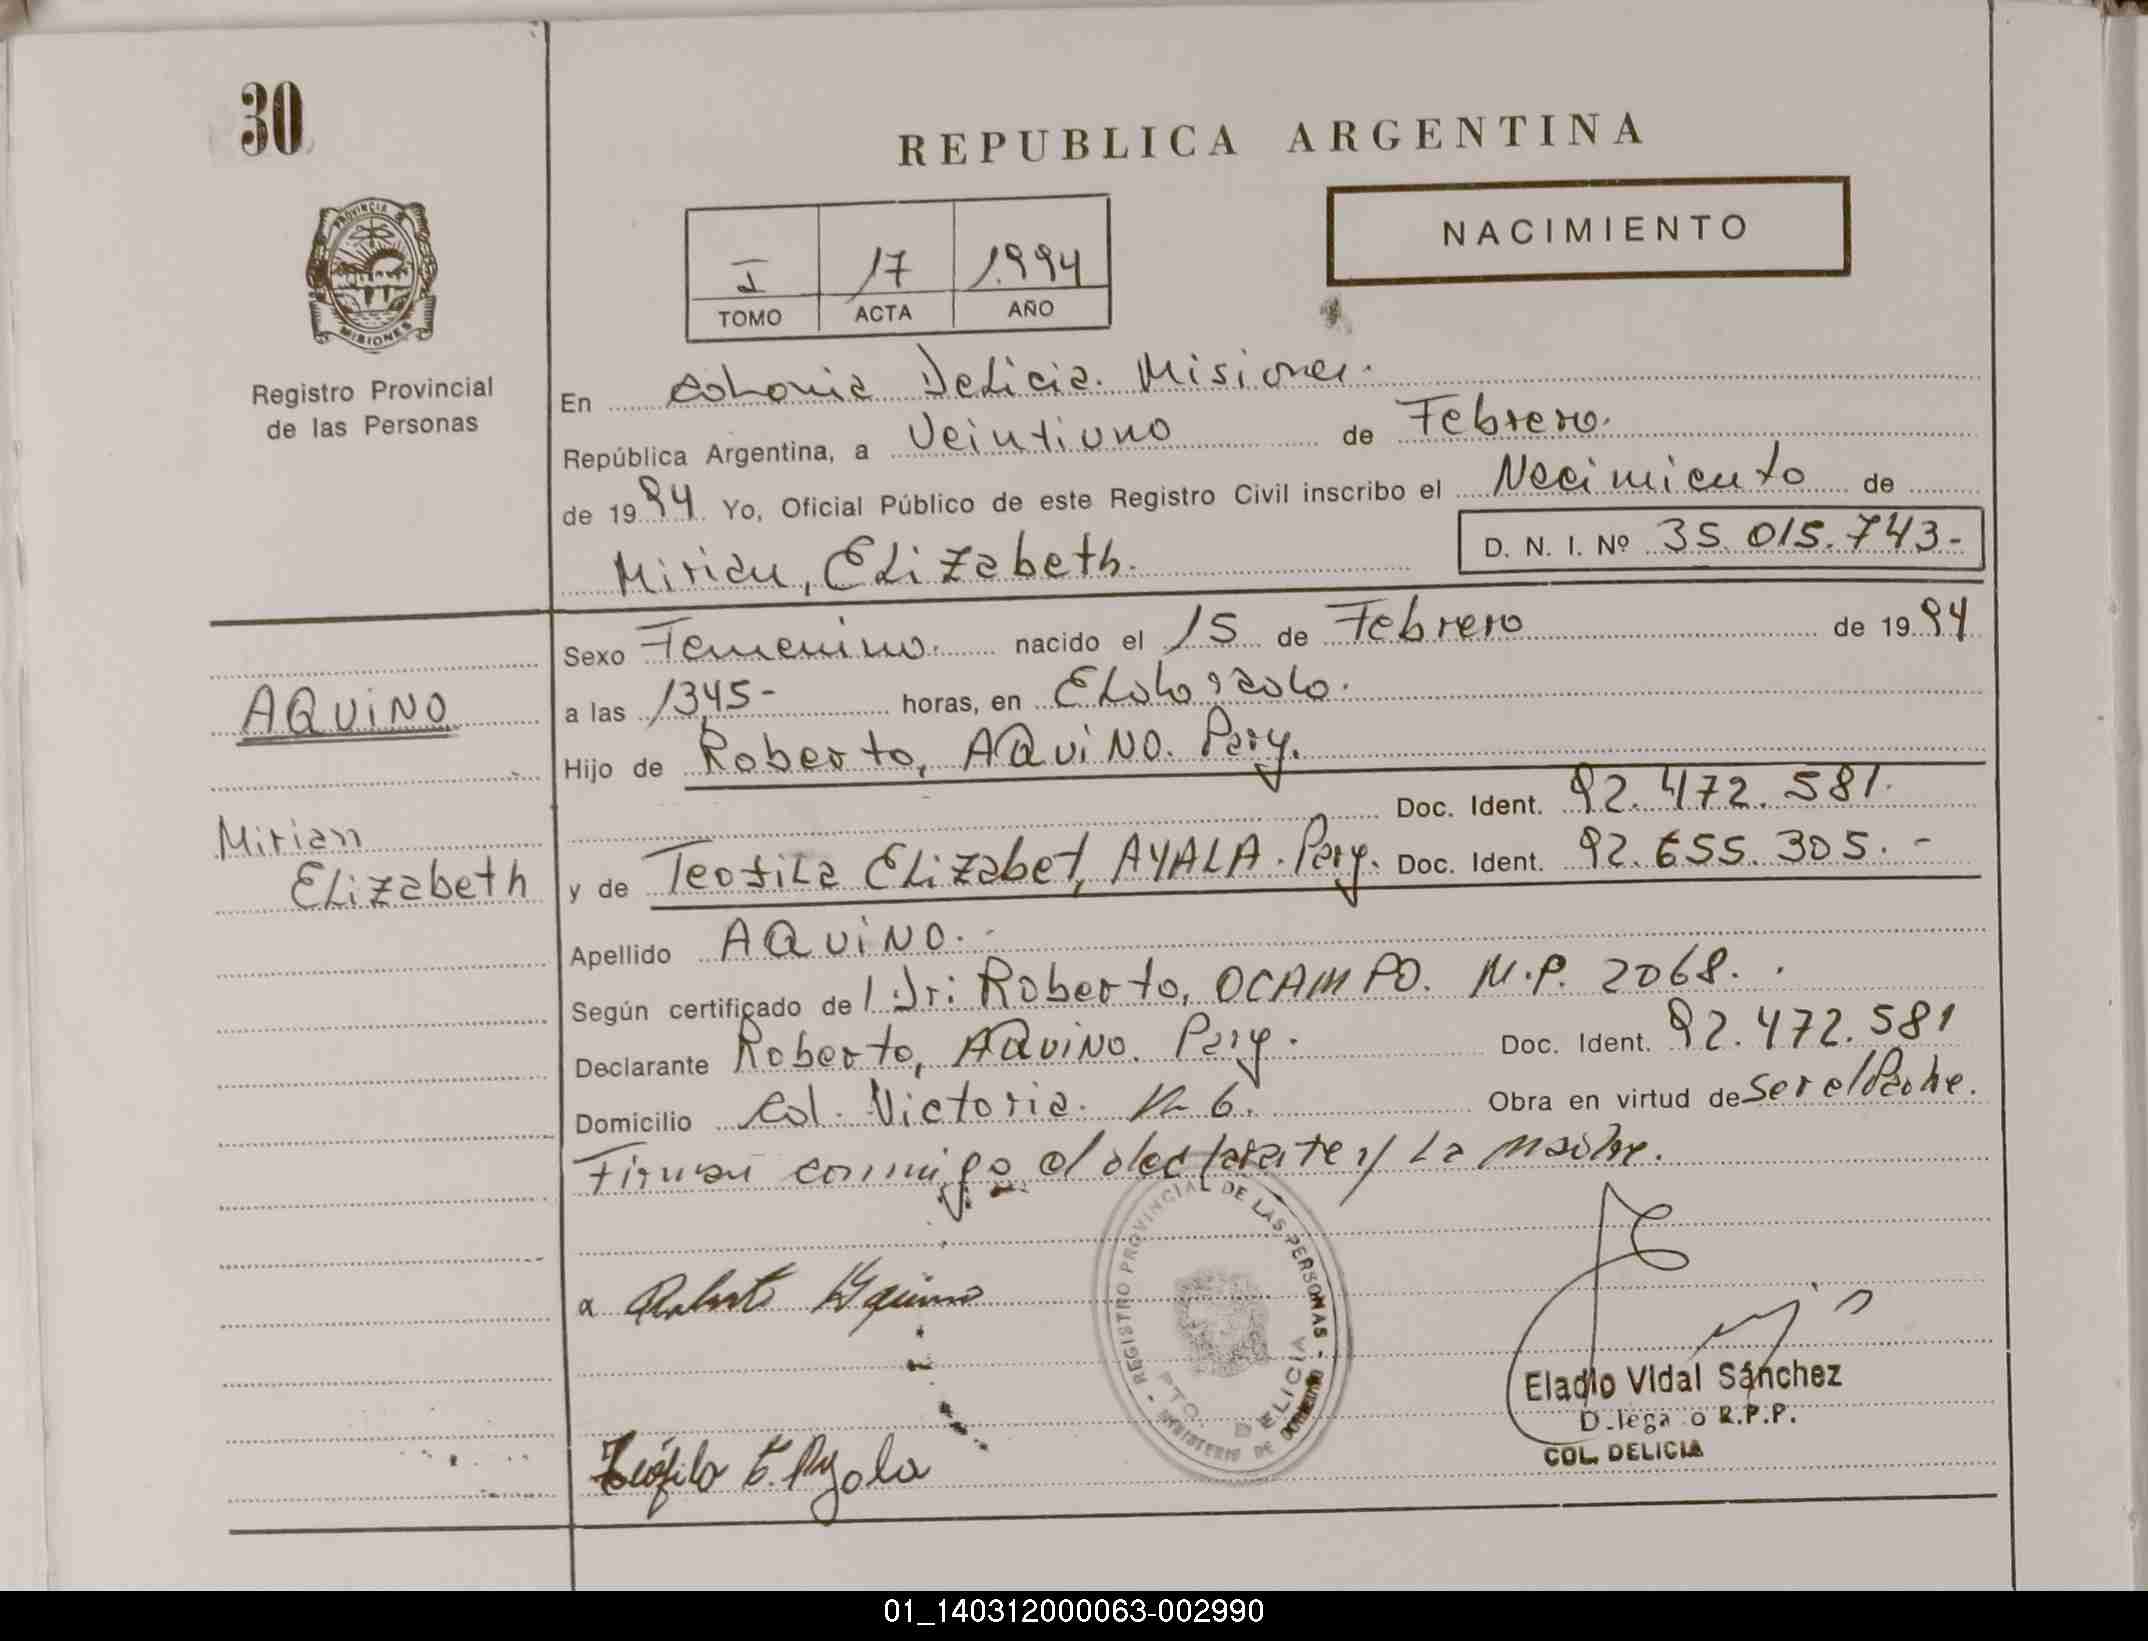 30
REPUBLICA ARGENTINA
PROVINCIA
MISIONES
NACIMIENTO
I 17 1.994
TOMO ACTA AÑO
Registro Provincial
de las Personas
En Colonia Delicia. Misiones.
República Argentina, a Veintiuno de Febrero.
de 1994. Yo, Oficial Público de este Registro Civil inscribo el Nacimiento de
Mirian, Elizabeth. D. N. I. Nº 35.015.743-
Sexo Femenino. nacido el 15 de Febrero de 1994
AQUINO
a las 1345- horas, en Eldorado.
Hijo de Roberto, AQUINO. Pary.
Doc. Ident. 92.472.581.
Mirian
Elizabeth
y de Teofila Elizabet, AYALA. Pary. Doc. Ident. 92.655.305.-
Apellido AQUINO.
Según certificado del Dr: Roberto, OCAMPO. M.P. 2068.
Declarante Roberto, AQUINO. Pary. Doc. Ident. 92.472.581
Domicilio Col. Victoria. 6. Obra en virtud de ser el Padre.
Firman conmigo el declarante y La madre.
REGISTRO PROVINCIAL DE LAS PERSONAS - MINISTERIO DE GOBIERNO -
PTO. DELICIA
Roberto Aquino
Eladio Vidal Sánchez
D.lega o R.P.P.
COL. DELICIA
Teófila E. Ayala
01_140312000063-002990